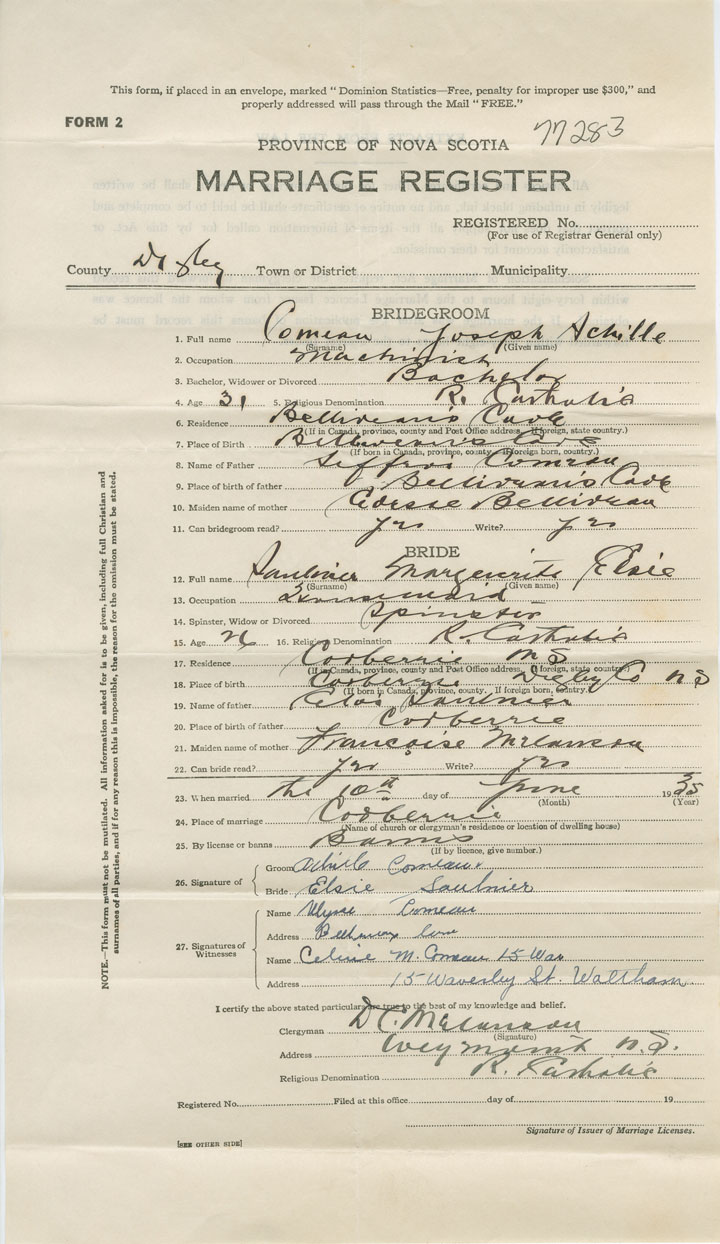 This form, if placed in an envelope, marked "Dominion Statistics—Free, penalty for improper use $300," and
properly addressed will pass through the Mail "FREE."
FORM 2
77283
PROVINCE OF NOVA SCOTIA
MARRIAGE REGISTER
REGISTERED No.
(For use of Registrar General only)
County Digby Town or District Municipality
BRIDEGROOM
1. Full name Comeau Joseph Achille
(Surname) (Given name)
2. Occupation Machinist
3. Bachelor, Widower or Divorced Bachelor
4. Age 31 5. Religious Denomination R. Catholic
6. Residence Belliveau's Cove
(If in Canada, province, county and Post Office address. If foreign, state country.)
7. Place of Birth Belliveau's Cove
(If born in Canada, province, county. If foreign born, country.)
8. Name of Father Comeau
9. Place of birth of father Belliveau's Cove
10. Maiden name of mother Belliveau
11. Can bridegroom read? yes Write? yes
BRIDE
12. Full name Saulnier Marguerite Elsie
(Surname) (Given name)
13. Occupation Housemaid
14. Spinster, Widow or Divorced Spinster
15. Age 26 16. Religious Denomination R. Catholic
17. Residence Corberrie N S
(If in Canada, province, county and Post Office address. If foreign, state country.)
18. Place of birth Corberrie Digby Co N S
(If born in Canada, province, county. If foreign born, country.)
19. Name of father Saulnier
20. Place of birth of father Corberrie
21. Maiden name of mother Françoise Melanson
22. Can bride read? yes Write? yes
23. When married the 10th day of June 1935
(Month) (Year)
24. Place of marriage Corberrie
(Name of church or clergyman's residence or location of dwelling house)
25. By license or banns Banns
(If by licence, give number.)
26. Signature of
Groom Achille Comeau
Bride Elsie Saulnier
27. Signatures of Witnesses
Name Ulysse Comeau
Address Belliveau Cove
Name Celine M. Comeau 15 Wav
Address 15 Waverley St. Waltham
I certify the above stated particulars are true to the best of my knowledge and belief.
Clergyman D C. Melanson
(Signature)
Address Weymouth N.S.
Religious Denomination R. Catholic
Registered No. Filed at this office day of 19
Signature of Issuer of Marriage Licenses.
[SEE OTHER SIDE]
NOTE.—This form must not be mutilated. All information asked for is to be given, including full Christian and
surnames of all parties, and if for any reason this is impossible, the reason for the omission must be stated.